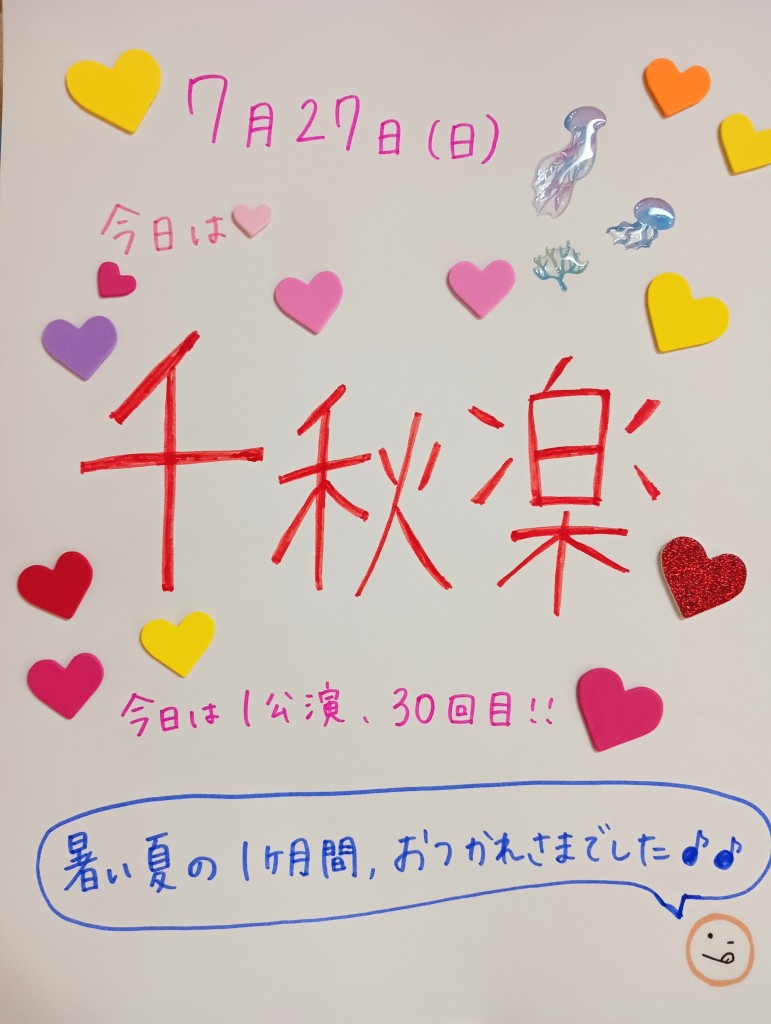 7月27日(日)
今日は
千秋楽
今日は1公演、30回目!!
暑い夏の1ヶ月間, おつかれさまでした♪♪